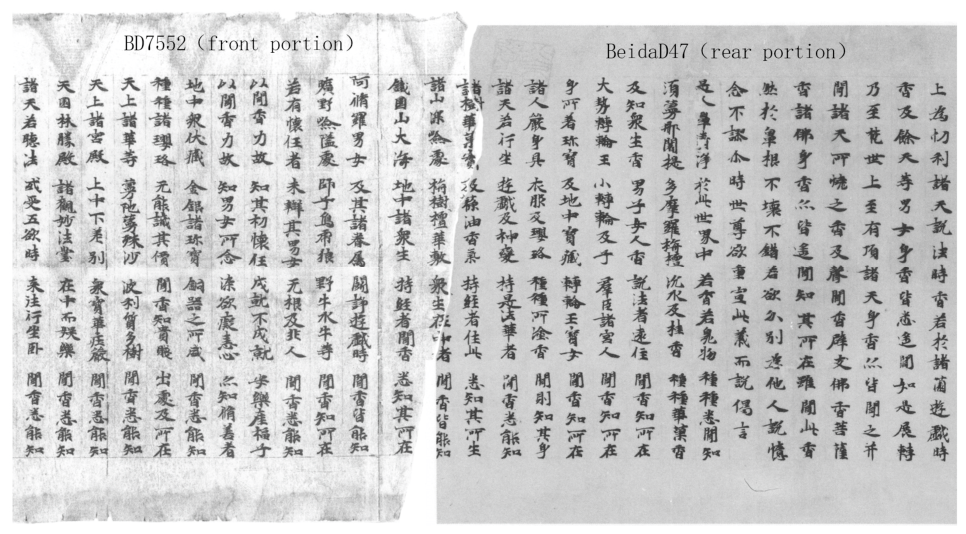 BD7552 (front portion)
BeidaD47 (rear portion)
上為忉利諸天說法時香若於諸薗遊戲時
香及餘天等男女身香皆悉遥聞如是展轉
乃至梵世上至有頂諸天身香亦皆聞之并
聞諸天所燒之香及聲聞香辟支佛香菩薩
香諸佛身香亦皆遥聞知其所在雖聞此香
然於鼻根不壞不錯若欲分別為他人說憶
念不謬尒時世尊欲重宣此義而說偈言
是人鼻清淨 於此世界中 若香若臭物 種種悉聞知
須蔓那闍提 多摩羅栴檀 沉水及桂香 種種華菓香
及知衆生香 男子女人香 說法者遠住 聞香知所在
大勢轉輪王 小轉輪及子 群臣諸宮人 聞香知所在
身所著珎寶 及地中寶藏 轉輪王寶女 聞香知所在
諸人嚴身具 衣服及瓔珞 種種所塗香 聞則知其身
諸天若行坐 遊戲及神變 持是法華者 聞香悉能知
諸樹華菓實 及蘇油香氣 持經者住此 悉知其所在
諸山深嶮處 栴檀樹華敷 衆生在中者 聞香皆能知
鐵圍山大海 地中諸衆生 持經者聞香 悉知其所在
阿脩羅男女 及其諸眷屬 鬪諍遊戲時 聞香皆能知
曠野嶮隘處 師子象虎狼 野牛水牛等 聞香知所在
若有懷任者 未辯其男女 无根及非人 聞香悉能知
以聞香力故 知其初懷任 成就不成就 安樂產福子
以聞香力故 知男女所念 染欲癡恚心 亦知脩善者
地中衆伏藏 金銀諸珎寶 銅器之所盛 聞香悉能知
種種諸瓔珞 无能識其價 聞香知貴賤 出處及所在
天上諸華等 曼陀曼殊沙 波利質多樹 聞香悉能知
天上諸宮殿 上中下差別 衆寶華莊嚴 聞香悉能知
天園林勝殿 諸觀妙法堂 在中而娛樂 聞香悉能知
諸天若聽法 或受五欲時 来法行坐卧 聞香悉能知